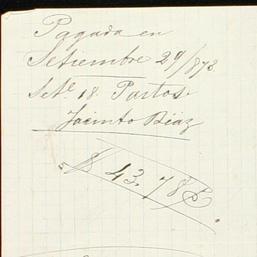 Pagada en
Setiembre 29/873
Set.e 18 Partos.
Jacinto Diaz
$ 43.78